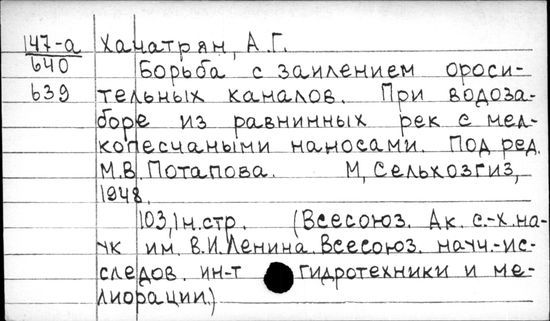 147-а Хачатрян, А.Г.
640 Борьба с заилением ороси-
639 тельных каналов. При водоза-
боре из равнинных рек с мел-
копесчаными наносами. Под ред.
М.В. Потапова. М, Сельхозгиз,
1948.
103,1н.стр. (Всесоюз. Ак. с.-х.на-
ук им. В.И.Ленина. Всесоюз. научн.-ис-
следов. ин-т гидротехники и ме-
лиорации.)